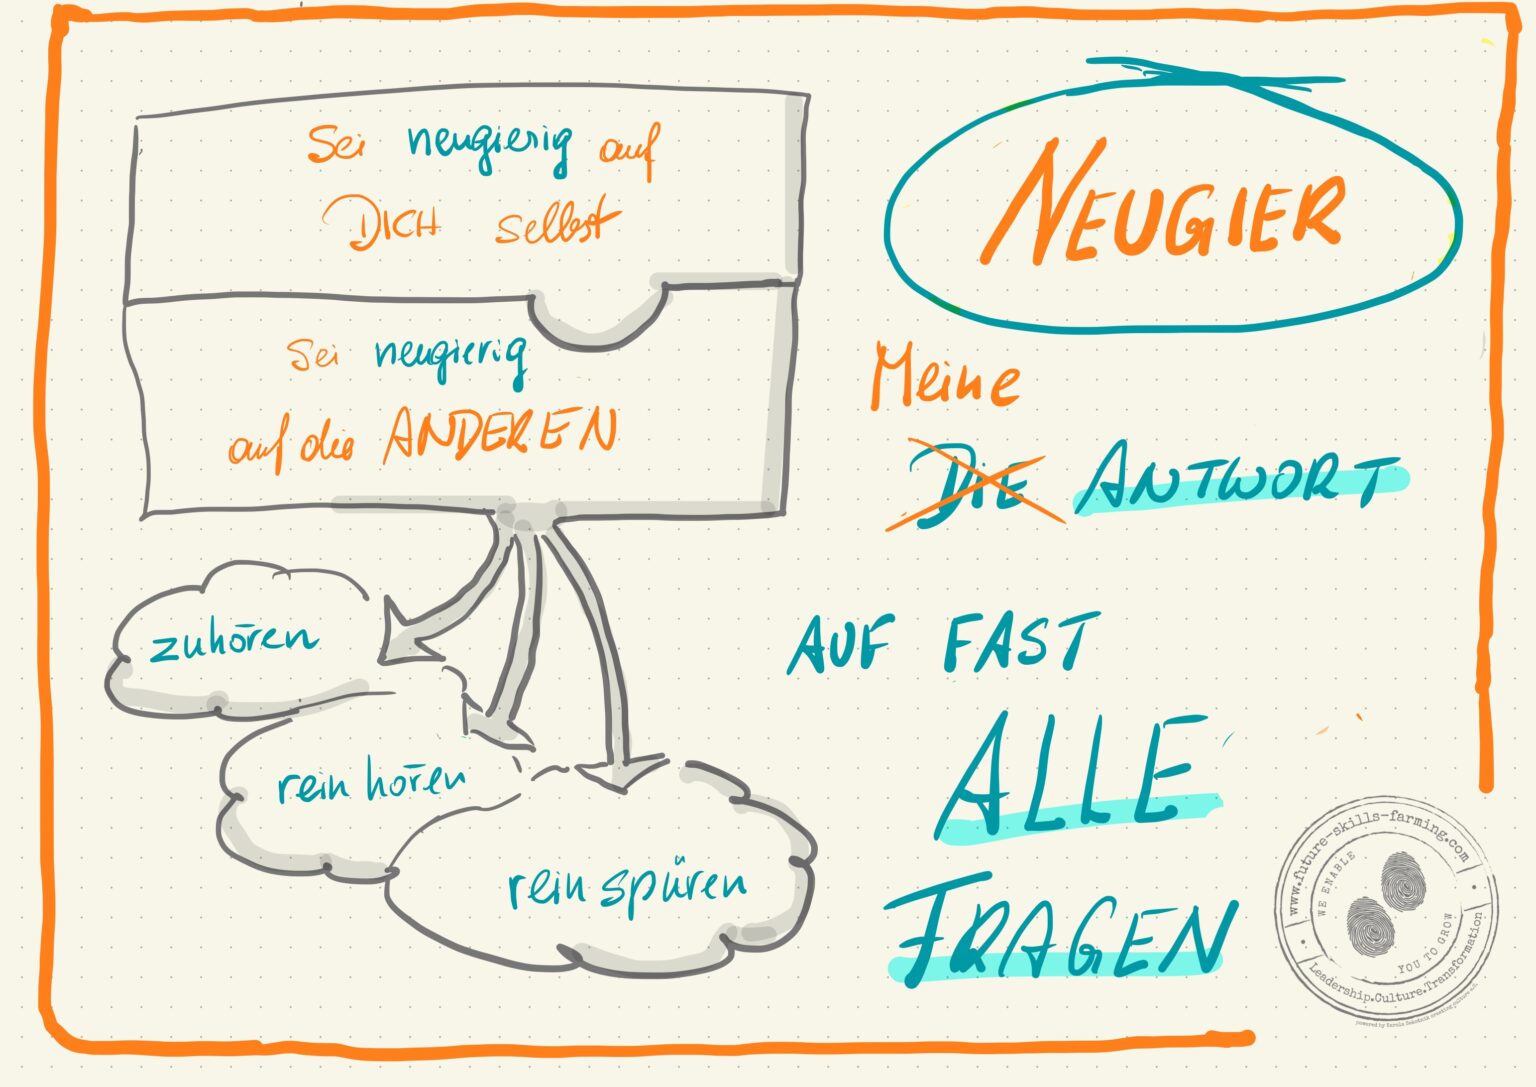 Sei neugierig auf
DICH selbst
Sei neugierig
auf die ANDEREN
zuhören
rein hören
rein spüren
NEUGIER
Meine
DIE ANTWORT
AUF FAST
ALLE
FRAGEN
www.future-skills-farming.com
WE ENABLE
YOU TO GROW
Leadership.Culture.Transformation